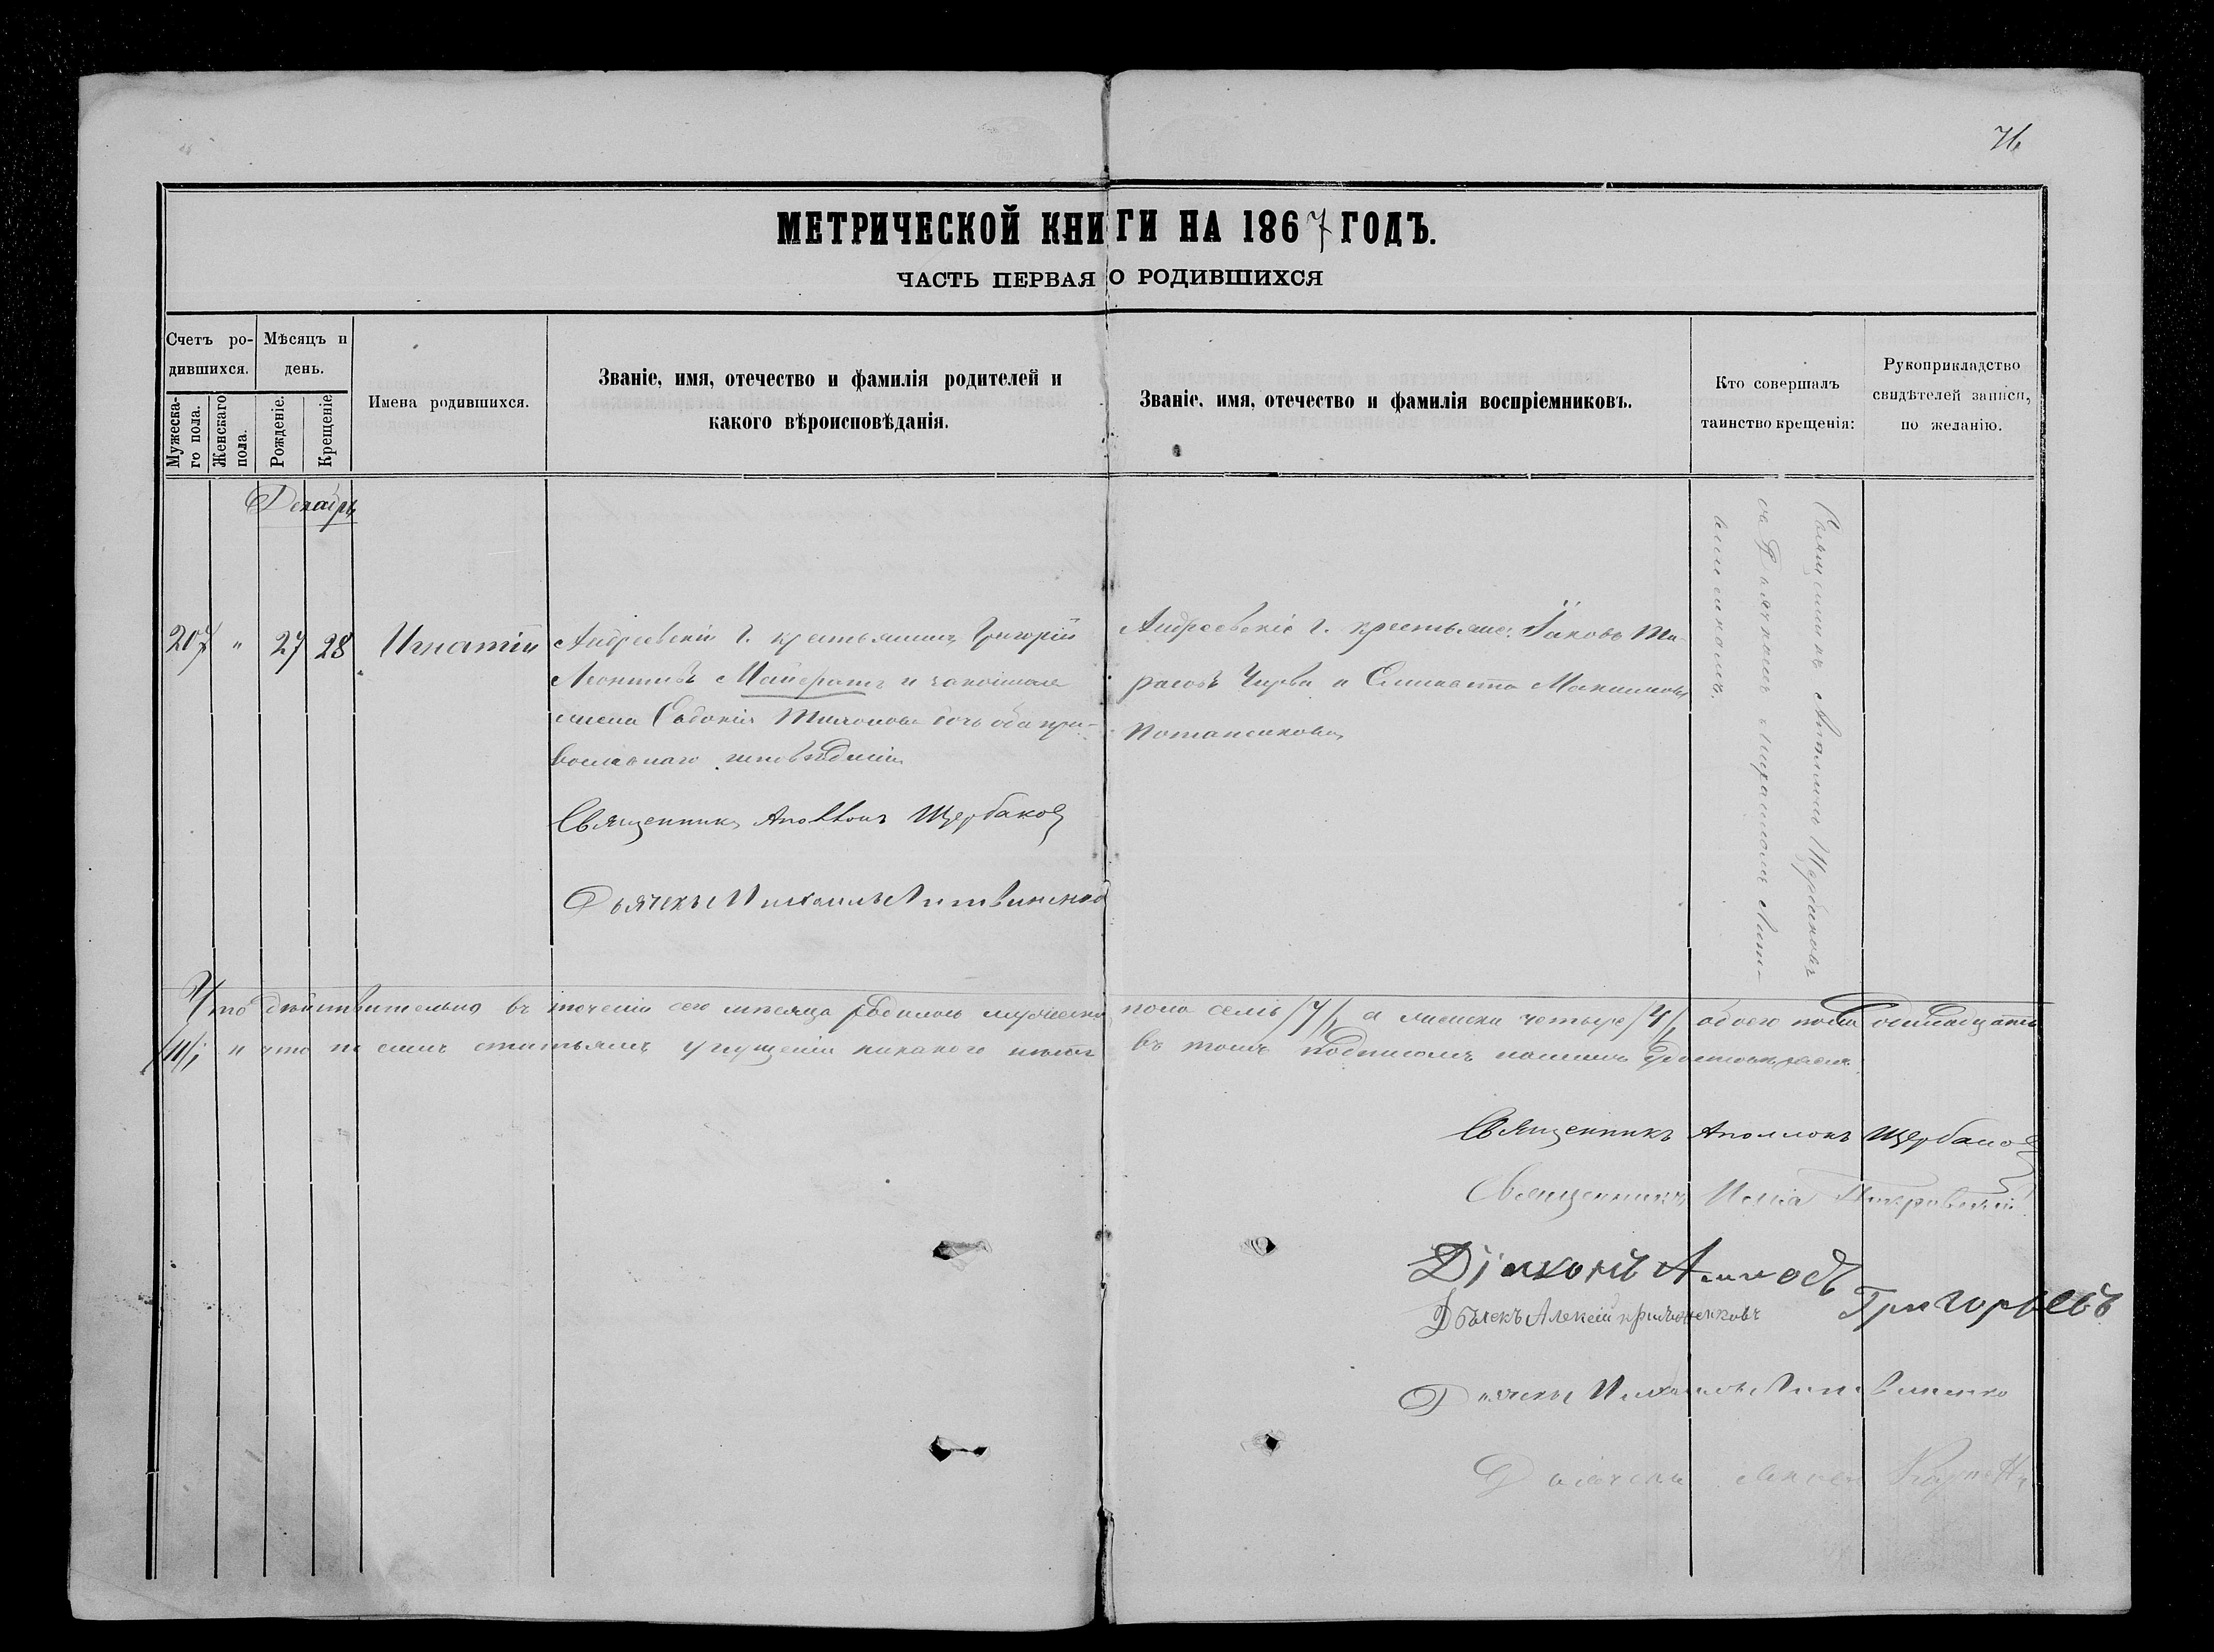 76
МЕТРИЧЕСКОЙ КНИГИ НА 1867 ГОДЪ.
ЧАСТЬ ПЕРВАЯ О РОДИВШИХСЯ
Счетъ ро-
дившихся.
Мужеска-
го пола.
Женскаго
пола.
Мѣсяцъ и
день.
Рожденіе.
Крещеніе
Имена родившихся.
Званіе, имя, отечество и фамилія родителей и
какого вѣроисповѣданія.
Званіе, имя, отечество и фамилія воспріемниковъ.
Кто совершалъ
таинство крещенія:
Рукоприкладство
свидѣтелей записи,
по желанію.
Декабрь
207 " 27 28 Игнатій
Андреевскій г. крестьянинъ Григорій
Леонтьевъ и законная
жена Евдокія оба пра-
вославнаго исповѣданія
Священникъ Аполлонъ Щербаковъ
Дьячекъ Михаилъ Литвиненко
Андреевскіе г. крестьяне: Іаковъ Та-
расовъ Чирва и Елисавета
Потапенкова
Священникъ Аполлонъ Щербаковъ
съ Дьячкомъ Михаиломъ Лит-
виненкомъ.
Что дѣйствительно въ теченіи сего мѣсяца родилось мужеска пола семь /7/, а женска четыре /4/, обоего пола одинадцать
/11/; и что по симъ статьямъ упущенія никакого нѣтъ въ томъ подписомъ нашимъ
Священникъ Аполлонъ Щербаковъ
Священникъ Покровскій
Діаконъ Григорьевъ
Дьячекъ Алексій
Дьячекъ Михаилъ Литвиненко
Дьячекъ